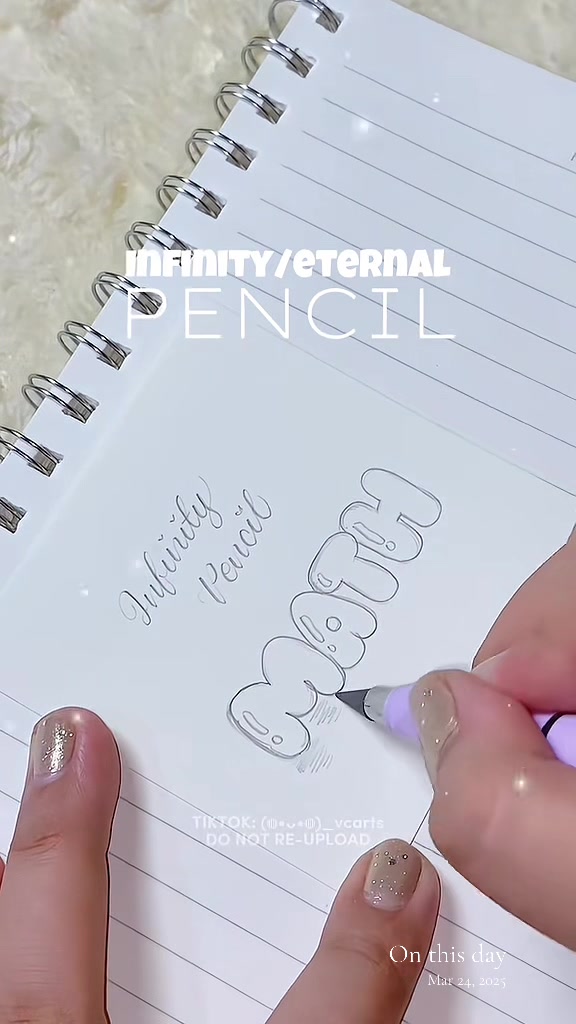 INFINITY/eTERNAL
PENCIL
Infinity
Pencil
MATH
TIKTOK: (◍•ᴗ•◍)_vcarts
DO NOT RE-UPLOAD
On this day
Mar 24, 2025